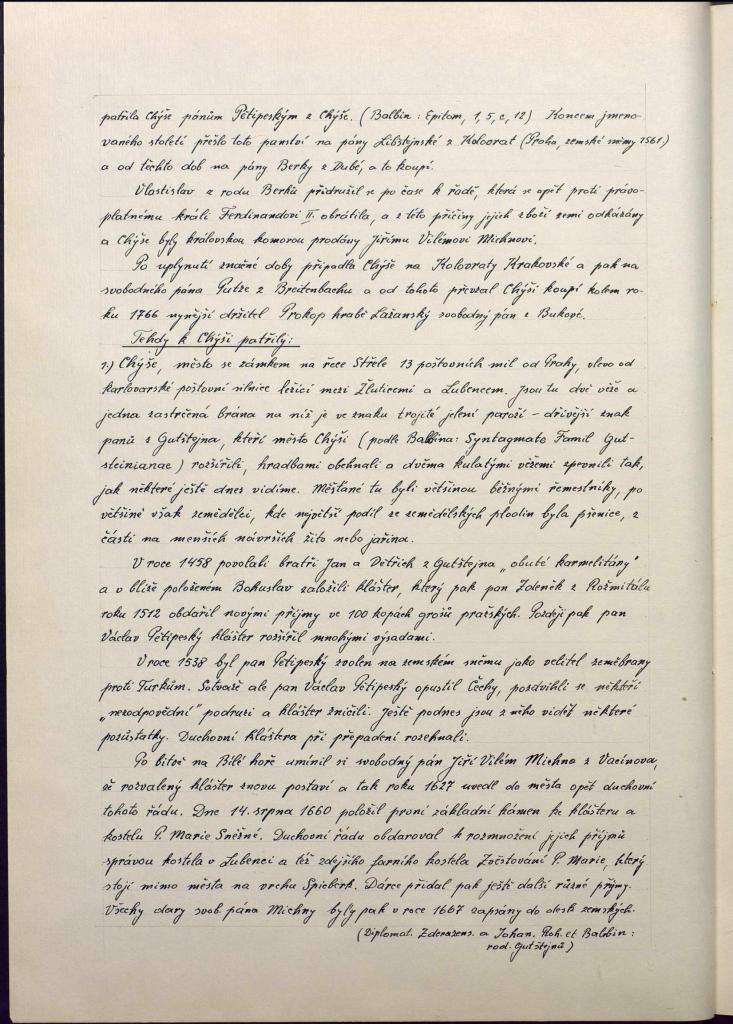 patřila Chýše pánům Pětipeským z Chýše. (Balbin: Epitom, 1, 5, c, 12) Koncem jmeno-
vaného století přešlo toto panství na pány Libštejnské z Kolovrat (Praha, zemské sněmy 1561.)
a od těchto dob na pány Berky z Dubé, a to koupí.
Vlastislav z rodu Berků přidružil se po čase k řadě, která se opět proti právo-
platnému králi Ferdinandovi II. obrátila, a z této příčiny jejich zboží zemi odkázány
a Chýše byly královskou komorou prodány Jiřímu Vilémovi Michnovi.
Po uplynutí značné doby připadla Chýše na Kolovraty Krakovské a pak na
svobodného pána Putze z Breitenbachu a od tohoto převzal Chýši koupí kolem ro-
ku 1766 nynější držitel Prokop hrabě Lažanský svobodný pán z Bukové.
Tehdy k Chýši patřily:
1.) Chýše, město se zámkem na řece Střele 13 poštovních mil od Prahy, vlevo od
karlovarské poštovní silnice ležící mezi Žluticemi a Lubencem. Jsou tu dvě věže a
jedna zastrčená brána na níž je ve znaku trojité jelení paroží - dřívější znak
panů z Gutštejna, kteří město Chýši (podle Balbína: Syntagmate Famil Gut-
steinianae) rozšířili, hradbami obehnali a dvěma kulatými věžemi zpevnili tak,
jak některé ještě dnes vidíme. Měšťané tu byli většinou běžnými řemeslníky, po
většině však zemědělci, kde největší podíl ze zemědělských plodin byla pšenice, z
části na menších návrších žito nebo jařina.
V roce 1458 povolali bratři Jan a Dětřich z Gutštejna „obuté karmelitány"
a v blíže položeném Bohuslav založili klášter, který pak pan Zdeněk z Rožmitálu
roku 1512 obdařil novými příjmy ve 100 kopách grošů pražských. Později pak pan
Václav Pětipeský klášter rozšířil mnohými výsadami.
V roce 1538 byl pan Pětipeský zvolen na zemském sněmu jako velitel zeměbrany
proti Turkům. Sotvaže ale pan Václav Pětipeský opustil Čechy, pozdvihli se někteří
„nezodpovědní" podruzi a klášter zničili. Ještě podnes jsou z něho vidět některé
pozůstatky. Duchovní kláštera při přepadení rozehnali.
Po bitvě na Bílé hoře umínil si svobodný pán Jiří Vilém Michna z Vacínova,
že rozvalený klášter znovu postaví a tak roku 1627 uvedl do města opět duchovní
tohoto řádu. Dne 14. srpna 1660 položil první základní kámen ke klášteru a
kostelu P. Marie Sněžné. Duchovní řádu obdaroval k rozmnožení jejich příjmů
správou kostela v Lubenci a též zdejšího farního kostela Zvěstování P. Marie, který
stojí mimo města na vrchu Spieberk. Dárce přidal pak ještě další různé příjmy.
Všechy dary svob. pána Michny byly pak v roce 1667 zapsány do desk zemských.
(Diplomat. Zderazens. a Johan. Roh. et Balbin:
rod. Gutštejnů)